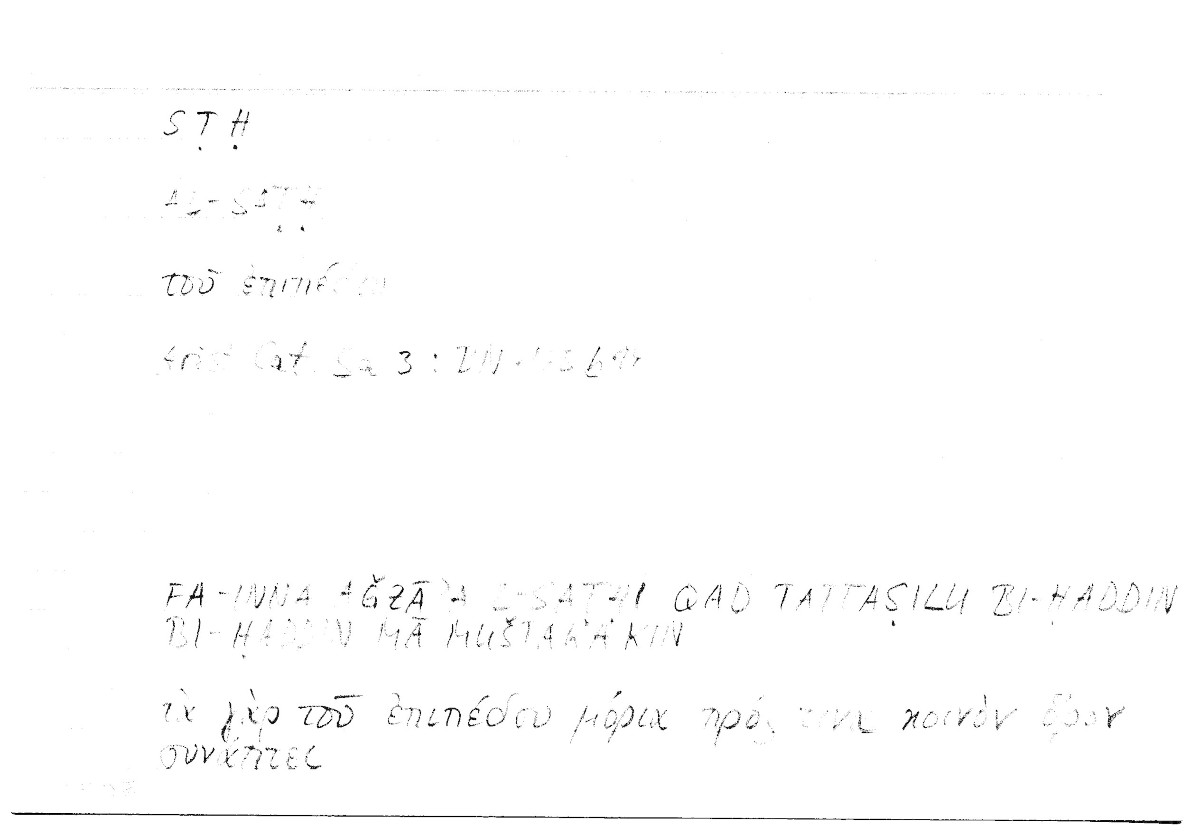 S Ṭ Ḥ
AL-SAṬḤ
τοῦ ἐπιπέδου
Arist Cat. 5a 3 :
FA-INNA AǦZĀʾA L-SAṬḤI QAD TATTAṢILU BI-ḤADDIN
BI-ḤADDIN MĀ MUŠTARAKIN
τὰ γὰρ τοῦ ἐπιπέδου μόρια πρός τινα κοινὸν ὅρον
συνάπτει